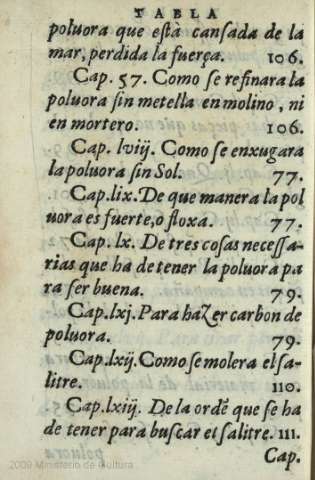 TABLA
poluora que està cansada de la
mar, perdida la fuerça. 106.
Cap. 57. Como se refinara la
poluora sin metella en molino, ni
en mortero. 106.
Cap. lviij. Como se enxugara
la poluora sin Sol. 77.
Cap. lix. De que manera la pol
uora es fuerte, o floxa. 77.
Cap. lx. De tres cosas necessa-
rias que ha de tener la poluora pa
ra ser buena. 79.
Cap. lxj. Para hazer carbon de
poluora. 79.
Cap. lxij. Como se molera el sa-
litre. 110.
Cap. lxiij. De la ordẽ que se ha
de tener para buscar el salitre. 111.
Cap.
2009 Ministerio de Cultura